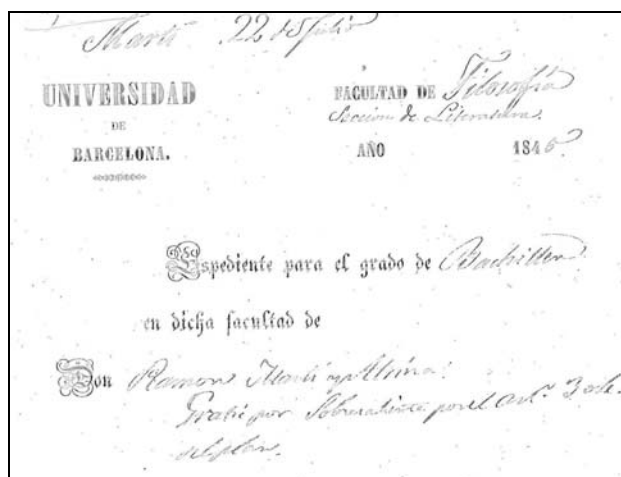 Martí 22 de Julio
UNIVERSIDAD
DE
BARCELONA.
FACULTAD DE Filosofía
Seccion de Literatura.
AÑO 184
Espediente para el grado de Bachiller
en dicha facultad de
Don Ramon Martí y
Gratis por Sobresaliente por el art.º 3
del plan.